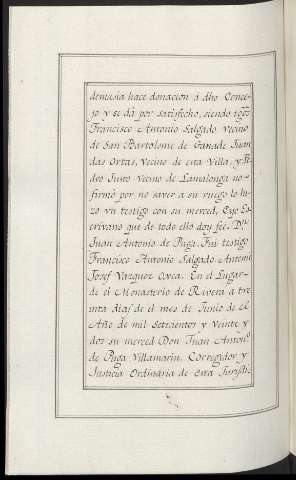 demasia hace donacion á dho Conce-
jo y se dá por satisfecho, siendo tgos
Francisco Antonio Salgado vecino
de San Bartolome de Ganade Juan
das Ortas, vecino de esta Villa, y Pe-
dro Justo vecino de Lamalonga no-
firmò por no saver a su ruego lo hi-
zo vn testigo con su merced, Eyo Es-
crivano que de todo ello doy fee. Dn
Juan Antonio de Puga. Fui testigo
Francisco Antonio Salgado Antemi
Josef Vazquez Corea. En el Lugar-
de el Monasterio de Rivera a tre
inta dias de el mes de Junio de el
Año de mil Setecientos y Veinte y
dos su merced Don Juan Anton.º
de Puga Villamarin, Corregidor y
Justicia Ordinaria de esta Jurisdic